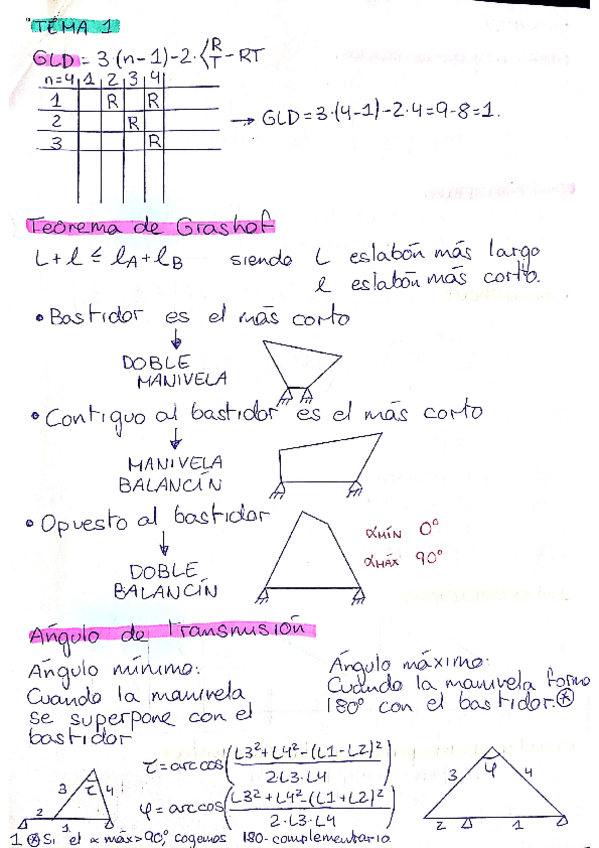 TEMA 1
GLD = 3·(n-1)-2·<R/T - RT
n=4 1 2 3 4
1 R R
2 R
3 R
→ GLD = 3·(4-1)-2·4=9-8=1.
Teorema de Grashof
L+l ≤ lA+lB siendo L eslabón más largo
l eslabón más corto.
• Bastidor es el más corto
DOBLE
MANIVELA
• Contiguo al bastidor es el más corto
MANIVELA
BALANCÍN
• Opuesto al bastidor
αMÍN 0°
αMÁX 90°
DOBLE
BALANCÍN
Ángulo de transmisión
Ángulo mínimo:
Cuando la manivela
se superpone con el
bastidor
Ángulo máximo:
Cuando la manivela forma
180° con el bastidor.⊛
τ = arc cos((L3²+L4²-(L1-L2)²)/(2·L3·L4))
φ = arc cos((L3²+L4²-(L1+L2)²)/(2·L3·L4))
3 τ 4
2
1
3 φ 4
2 1
1 ⊛ Si el α máx>90°, cogemos 180-complementario